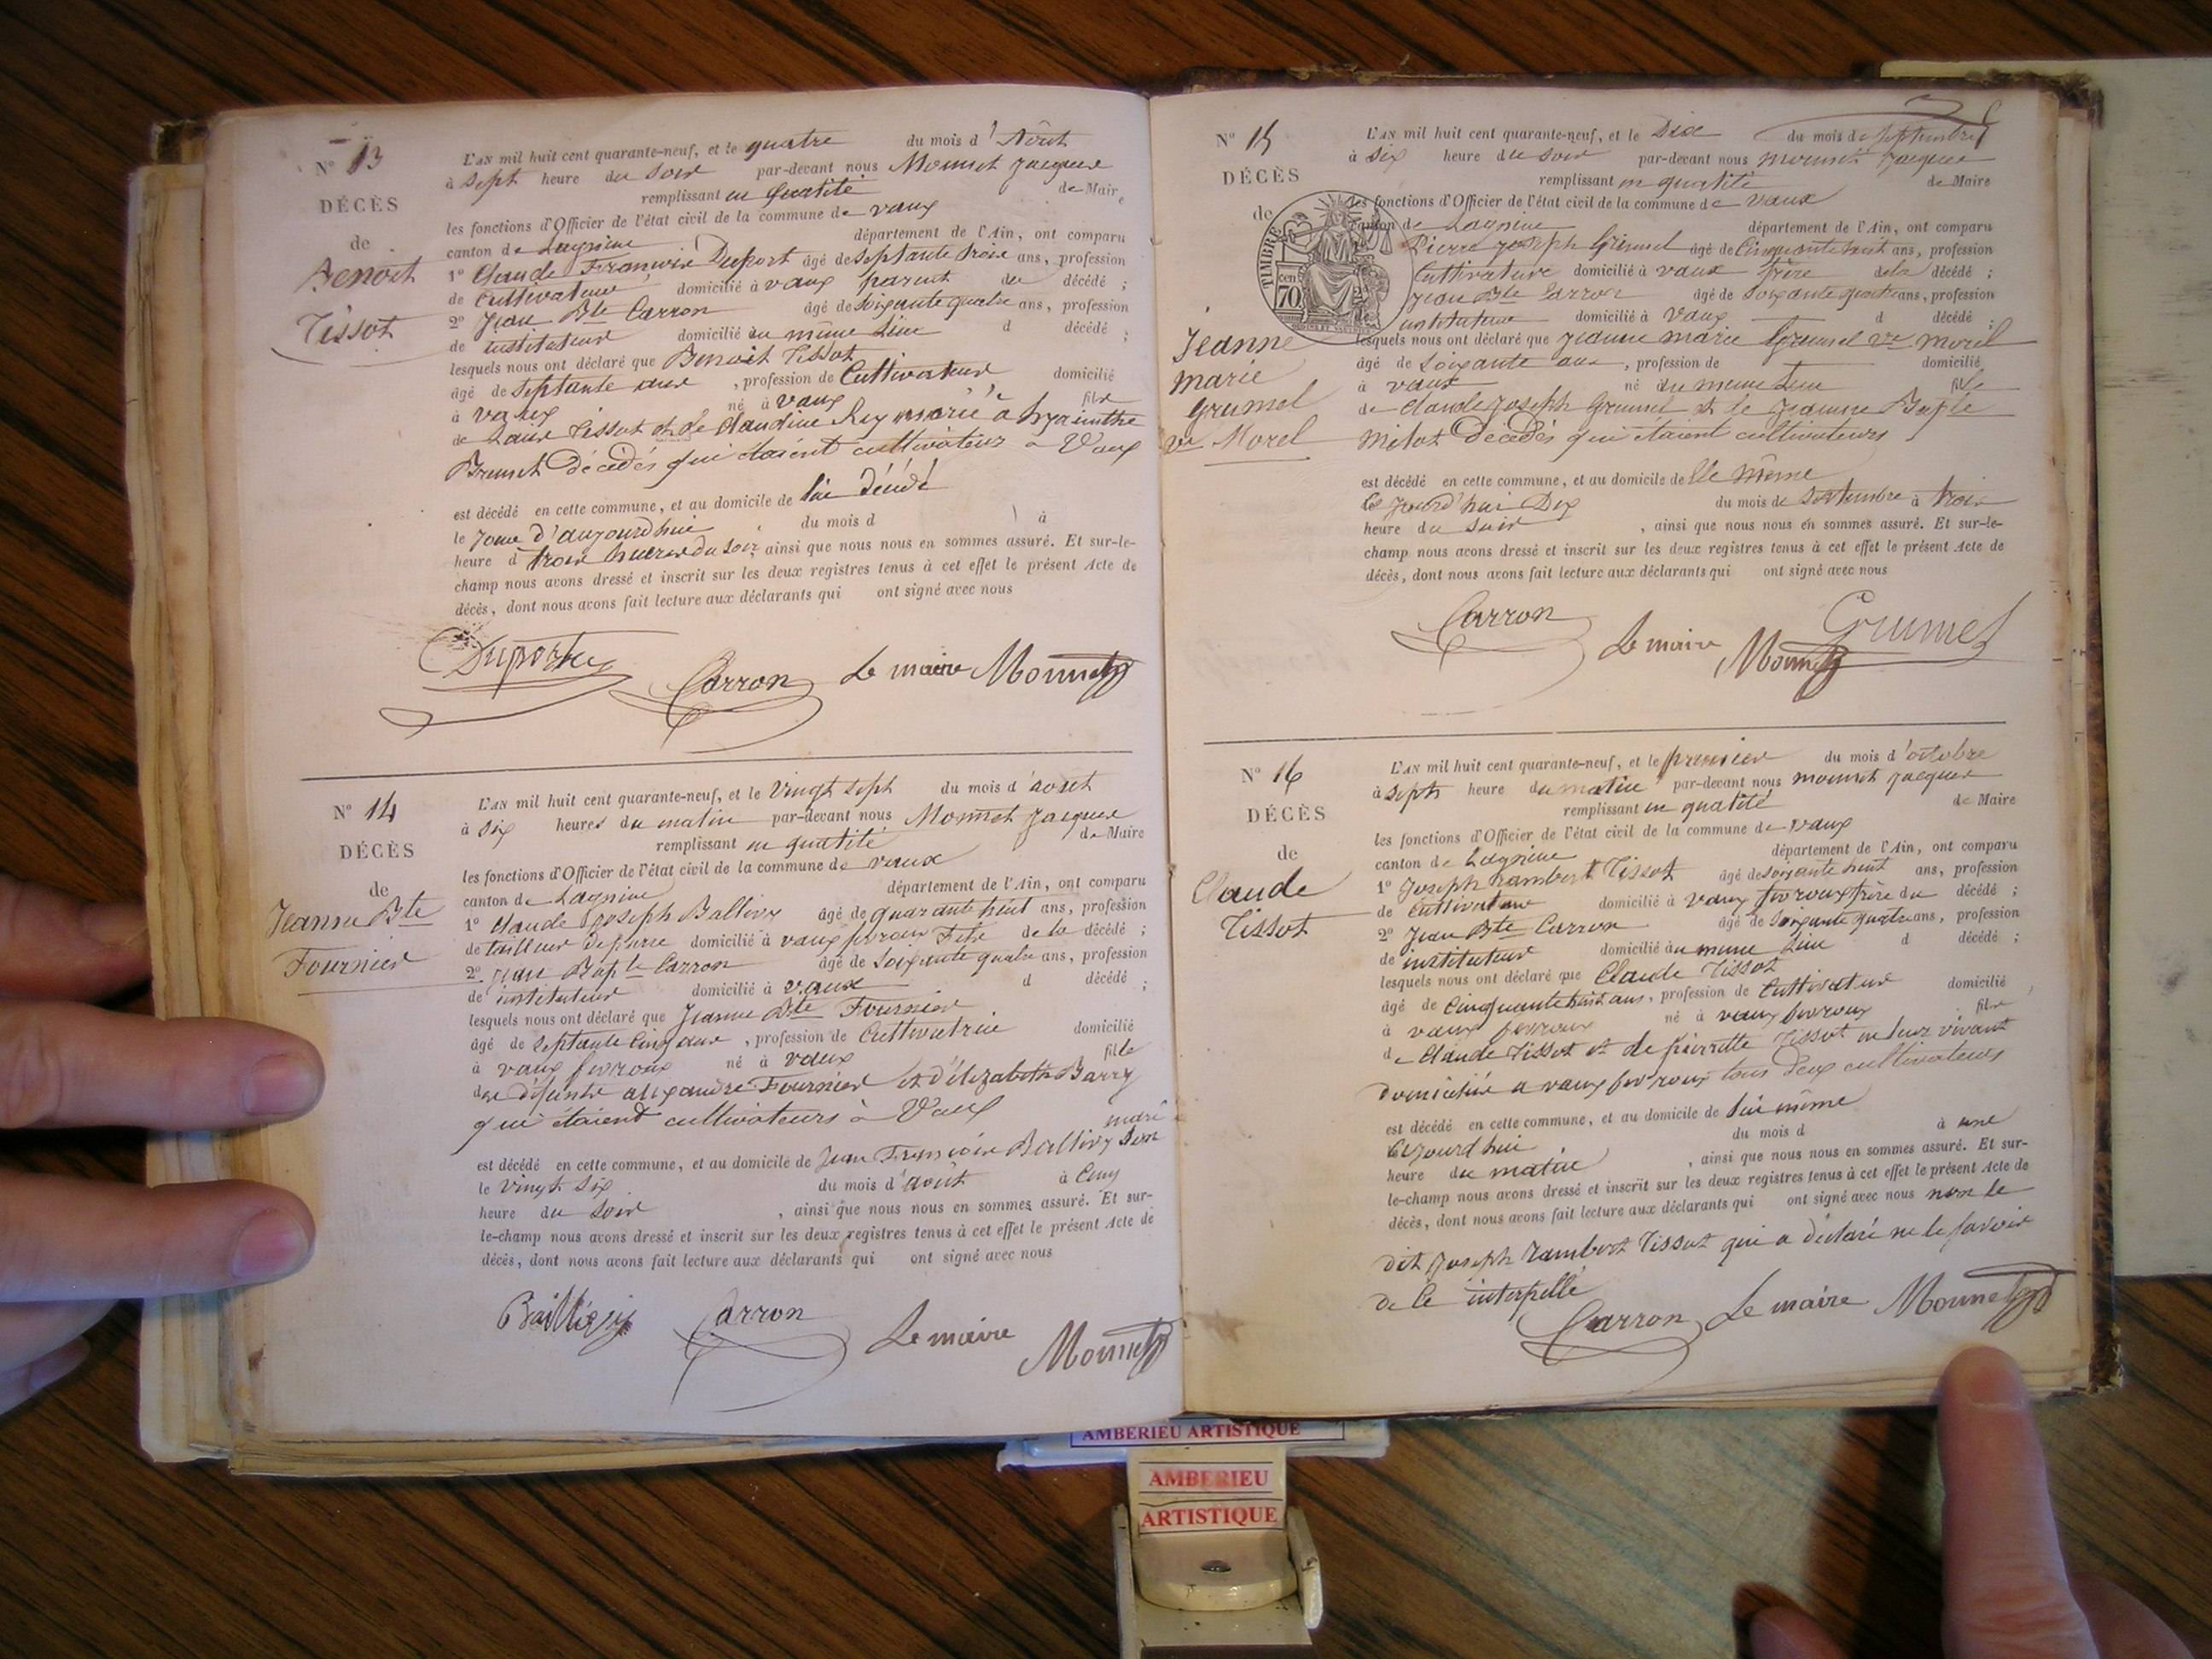 N° 13
DÉCÈS
de
Benoit
Tissot
L'AN mil huit cent quarante-neuf, et le quatre du mois d'Août
à sept heure du soir par-devant nous Monnet Jacques
remplissant en qualité de Maire
les fonctions d'Officier de l'état civil de la commune de vaux
canton de Lagnieu département de l'Ain, ont comparu
1° Claude François Duport âgé de septante trois ans, profession
de Cultivateur domicilié à vaux parent du décédé ;
2° Jean Bte Carron âgé de soixante quatre ans, profession
de instituteur domicilié au même lieu d décédé ;
lesquels nous ont déclaré que Benoit Tissot
âgé de septante ans, profession de Cultivateur domicilié
à vaux né à vaux fils
de Tissot et de Claudine Rey marié à hyacinthe
Brunet décédés qui étaient cultivateurs à Vaux
est décédé en cette commune, et au domicile de lui décédé
le Jour d'aujourd'hui du mois d à
heure d trois heures du soir ainsi que nous nous en sommes assuré. Et sur-le-
champ nous avons dressé et inscrit sur les deux registres tenus à cet effet le présent Acte de
décès, dont nous avons fait lecture aux déclarants qui ont signé avec nous
Carron Le maire Monnet
N° 14
DÉCÈS
de
Jeanne Bte
Fournier
L'AN mil huit cent quarante-neuf, et le vingt sept du mois d'aout
à six heures du matin par-devant nous Monnet Jacques
remplissant en qualité de Maire
les fonctions d'Officier de l'état civil de la commune de vaux
canton de Lagnieu département de l'Ain, ont comparu
1° Claude Joseph Ballivy âgé de quarante huit ans, profession
de tailleur de pierre domicilié à vaux fevroux de la décédé ;
2° Jean Bapte Carron âgé de soixante quatre ans, profession
de instituteur domicilié à vaux d décédé ;
lesquels nous ont déclaré que Jeanne Bte Fournier
âgé de septante cinq ans, profession de Cultivatrice domicilié
à vaux fevroux né à vaux fille
de défunts alexandre Fournier et d'élizabeth Barry
qui étaient cultivateurs à Vaux
mari
est décédé en cette commune, et au domicile de Jean François Ballivy son
le vingt six du mois d'août à Cinq
heure du soir, ainsi que nous nous en sommes assuré. Et sur-
le-champ nous avons dressé et inscrit sur les deux registres tenus à cet effet le présent Acte de
décès, dont nous avons fait lecture aux déclarants qui ont signé avec nous
Carron Le maire Monnet
N° 15
DÉCÈS
de
Jeanne
marie
Grumel
ve Morel
TIMBRE
cen
70
L'AN mil huit cent quarante-neuf, et le Dix du mois de septembre
à six heure du soir par-devant nous monnet Jacques
remplissant en qualité de Maire
les fonctions d'Officier de l'état civil de la commune de vaux
canton de Lagnieu département de l'Ain, ont comparu
Pierre Joseph Grumel âgé de Cinquante huit ans, profession
Cultivateur domicilié à vaux frère de la décédé ;
Jean Bte Carron âgé de soixante quatre ans, profession
de instituteur domicilié à vaux d décédé ;
lesquels nous ont déclaré que Jeanne marie Grumel ve morel
âgé de soixante ans, profession de domicilié
à vaux né au meme Lieu fille
de Claude Joseph Grumel et de Jeanne Bapte
milot Décédés qui étaient cultivateurs
est décédé en cette commune, et au domicile de Elle même
Ce Jourd'hui Dix du mois de septembre à trois
heure du soir, ainsi que nous nous en sommes assuré. Et sur-le-
champ nous avons dressé et inscrit sur les deux registres tenus à cet effet le présent Acte de
décès, dont nous avons fait lecture aux déclarants qui ont signé avec nous
Carron Le maire Monnet Grumel
N° 16
DÉCÈS
de
Claude
Tissot
L'AN mil huit cent quarante-neuf, et le premier du mois d'octobre
à sept heure du matin par-devant nous monnet Jacques
remplissant en qualité de Maire
les fonctions d'Officier de l'état civil de la commune de vaux
canton de Lagnieu département de l'Ain, ont comparu
1° Joseph Rambert Tissot âgé de soixante huit ans, profession
de Cultivateur domicilié à vaux fevroux frère du décédé ;
2° Jean Bte Carron âgé de soixante quatre ans, profession
de instituteur domicilié au meme Lieu d décédé ;
lesquels nous ont déclaré que Claude Tissot
âgé de Cinquante huit ans, profession de Cultivateur domicilié
à vaux fevroux né à vaux fevroux fils
de Claude Tissot et de pierrette Tissot en leur vivant
domiciliés a vaux fevroux tous deux cultivateurs
est décédé en cette commune, et au domicile de lui même
Cejourd'hui du mois d à une
heure du matin, ainsi que nous nous en sommes assuré. Et sur-
le-champ nous avons dressé et inscrit sur les deux registres tenus à cet effet le présent Acte de
décès, dont nous avons fait lecture aux déclarants qui ont signé avec nous non le
dit Joseph Rambert Tissot qui a déclaré ne le savoir
de ce interpellé
Carron Le maire Monnet
AMBERIEU ARTISTIQUE
AMBERIEU
ARTISTIQUE